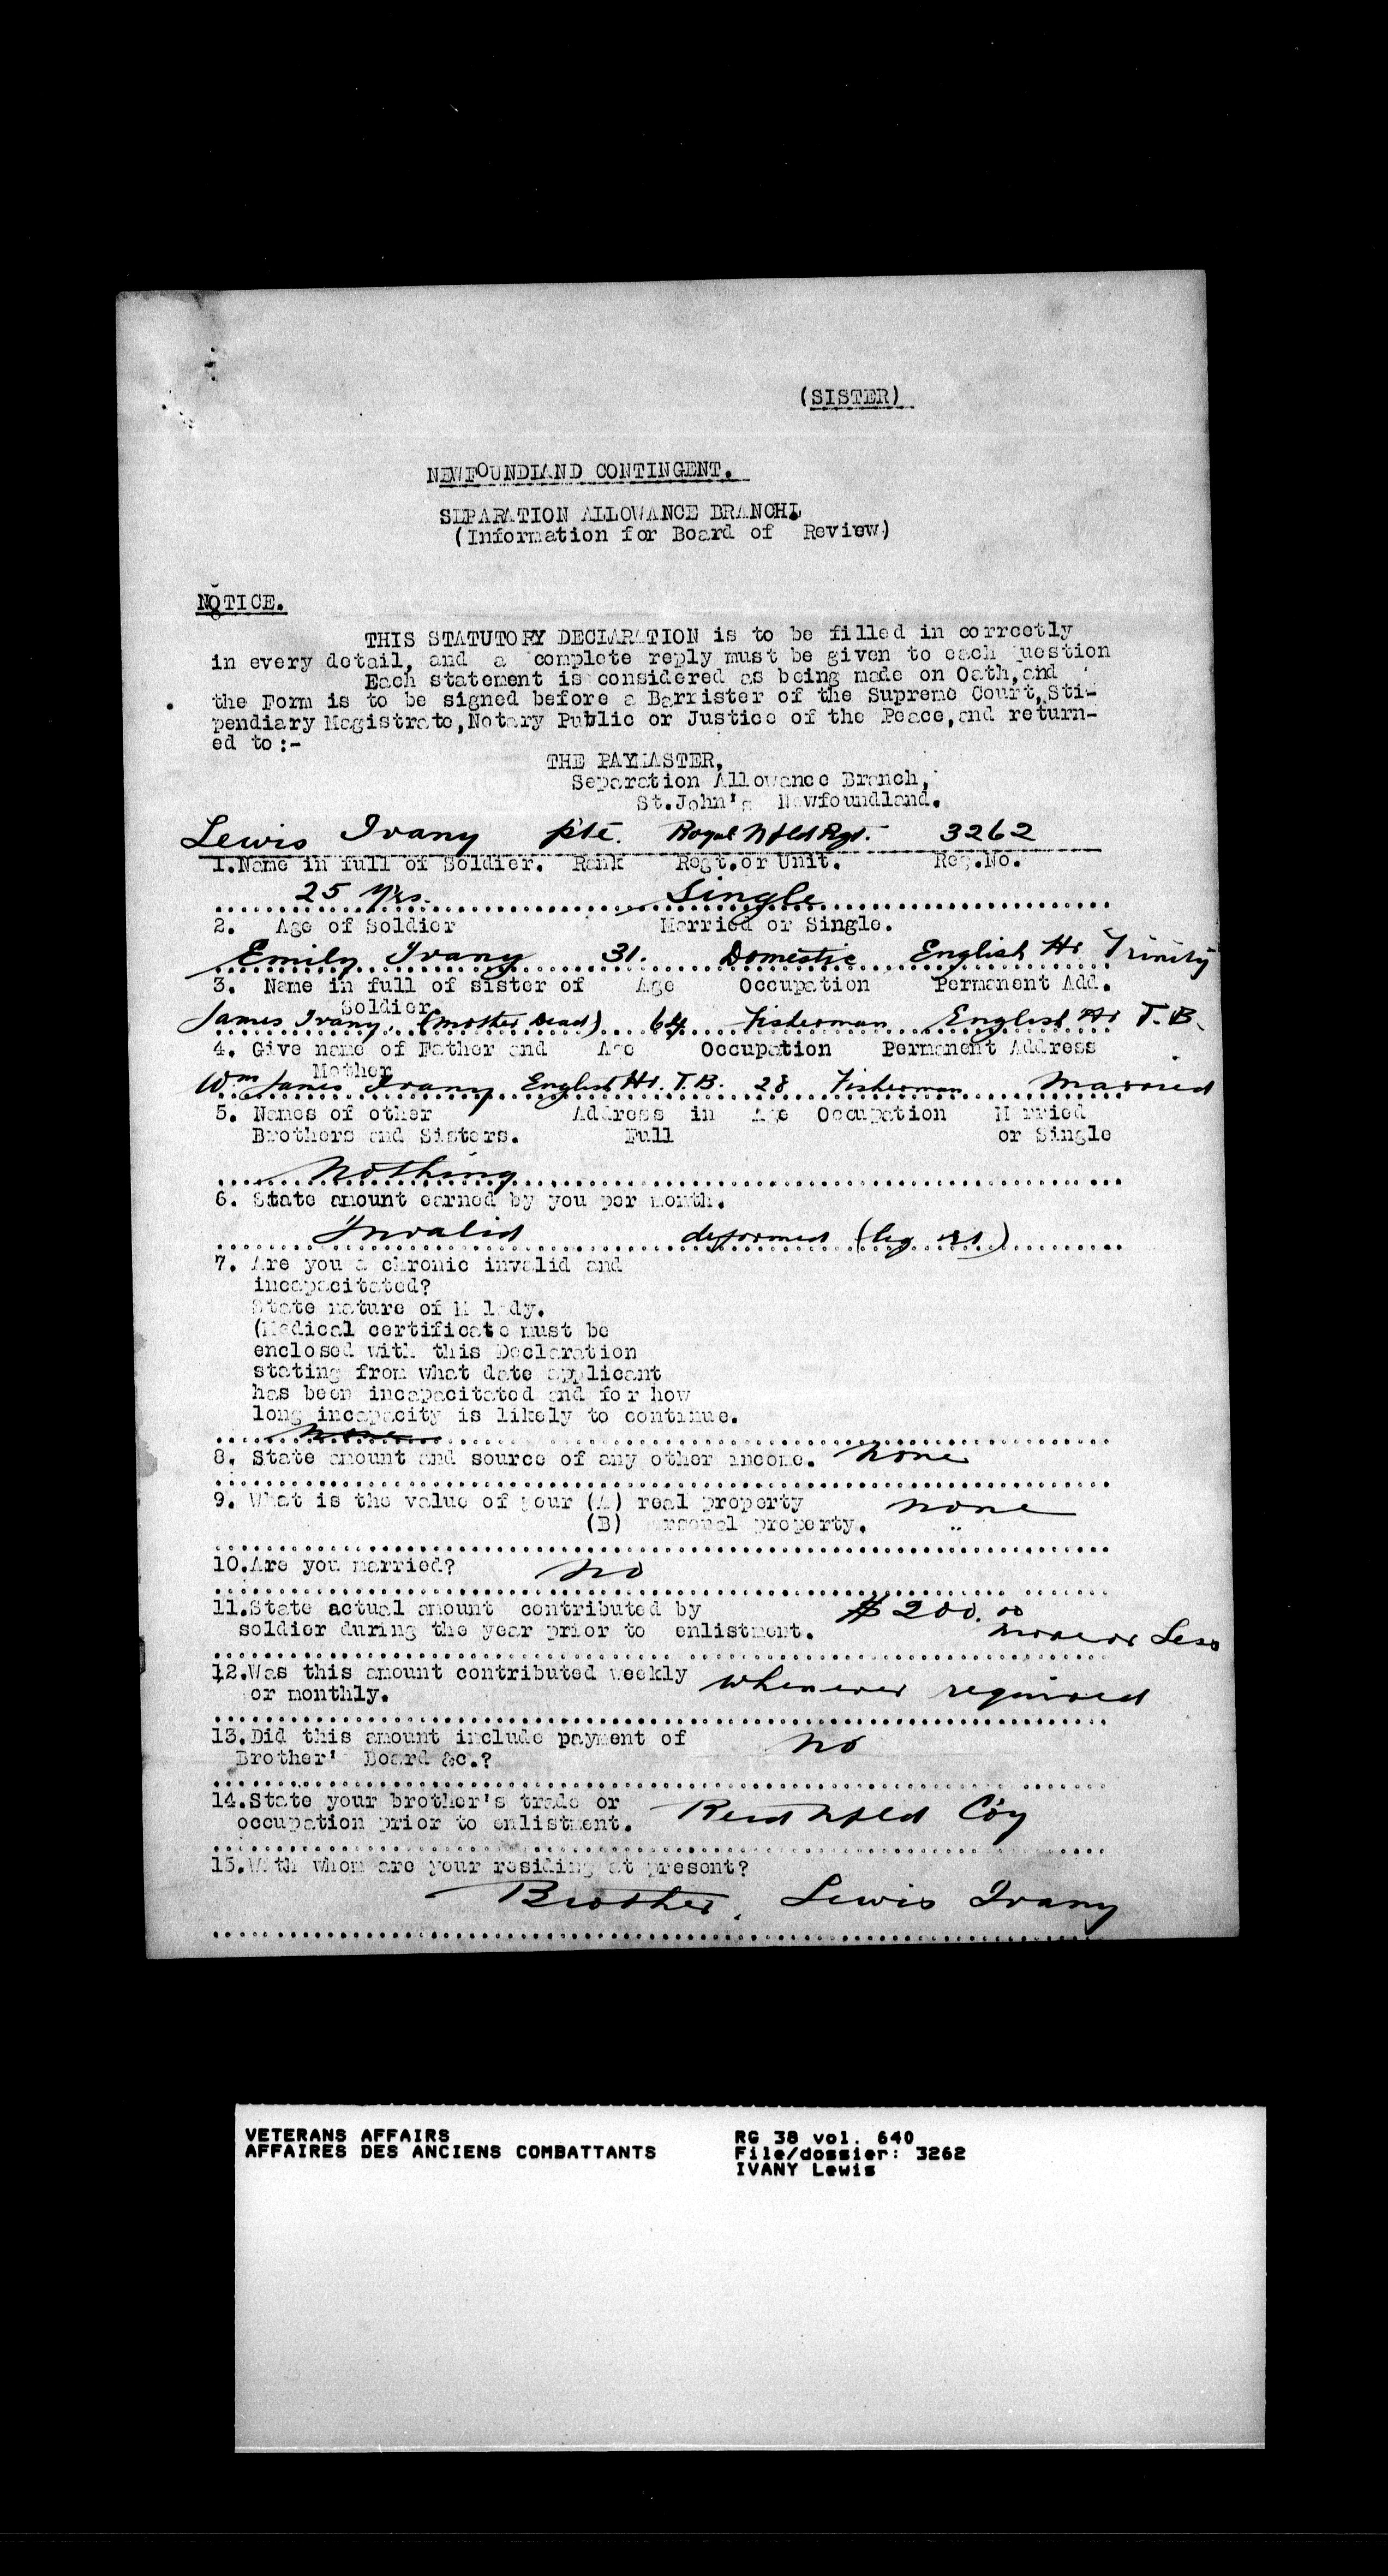 (SISTER)
NEWFOUNDLAND CONTINGENT.
SEPARATION ALLOWANCE BRANCH.
(Information for Board of Review)
NOTICE.
THIS STATUTORY DECLARATION is to be filled in correctly
in every detail, and a complete reply must be given to each question
Each statement is considered as being made on Oath, and
the Form is to be signed before a Barrister of the Supreme Court, Sti-
pendiary Magistrate, Notary Public or Justice of the Peace, and return-
ed to :-
THE PAYMASTER,
Separation Allowance Branch,
St. John's Newfoundland.
Lewis Ivany Pte. Royal Nfld Rgt. 3262
1. Name in full of Soldier. Rank Regt. or Unit. Reg. No.
25 Yrs. Single
2. Age of Soldier Married or Single.
Emily Ivany 31. Domestic English Hr Trinity
3. Name in full of sister of Age Occupation Permanent Add.
Soldier.
James Ivany. (Mother Dead) 64 Fisherman English Hr T.B.
4. Give name of Father and Age Occupation Permanent Address
Mother
Wm James Ivany English Hr. T.B. 28 Fisherman Married
5. Names of other Address in Age Occupation Married
Brothers and Sisters. Full or Single
Nothing
6. State amount earned by you per month.
Invalid deformed (leg )
7. Are you a chronic invalid and
incapacitated?
State nature of Malady.
(Medical certificate must be
enclosed with this Declaration
stating from what date applicant
has been incapacitated and for how
long incapacity is likely to continue.
none
8. State amount and source of any other income. none
9. What is the value of your (A) real property none
(B) personal property. "
10. Are you married? no
11. State actual amount contributed by $200.00
soldier during the year prior to enlistment. more or Less
12. Was this amount contributed weekly whenever required
or monthly.
13. Did this amount include payment of no
Brother's Board &c.?
14. State your brother's trade or Reid Nfld Coy
occupation prior to enlistment.
15. With whom are your residing at present?
Brother, Lewis Ivany
VETERANS AFFAIRS RG 38 vol. 640
AFFAIRES DES ANCIENS COMBATTANTS File/dossier: 3262
IVANY Lewis